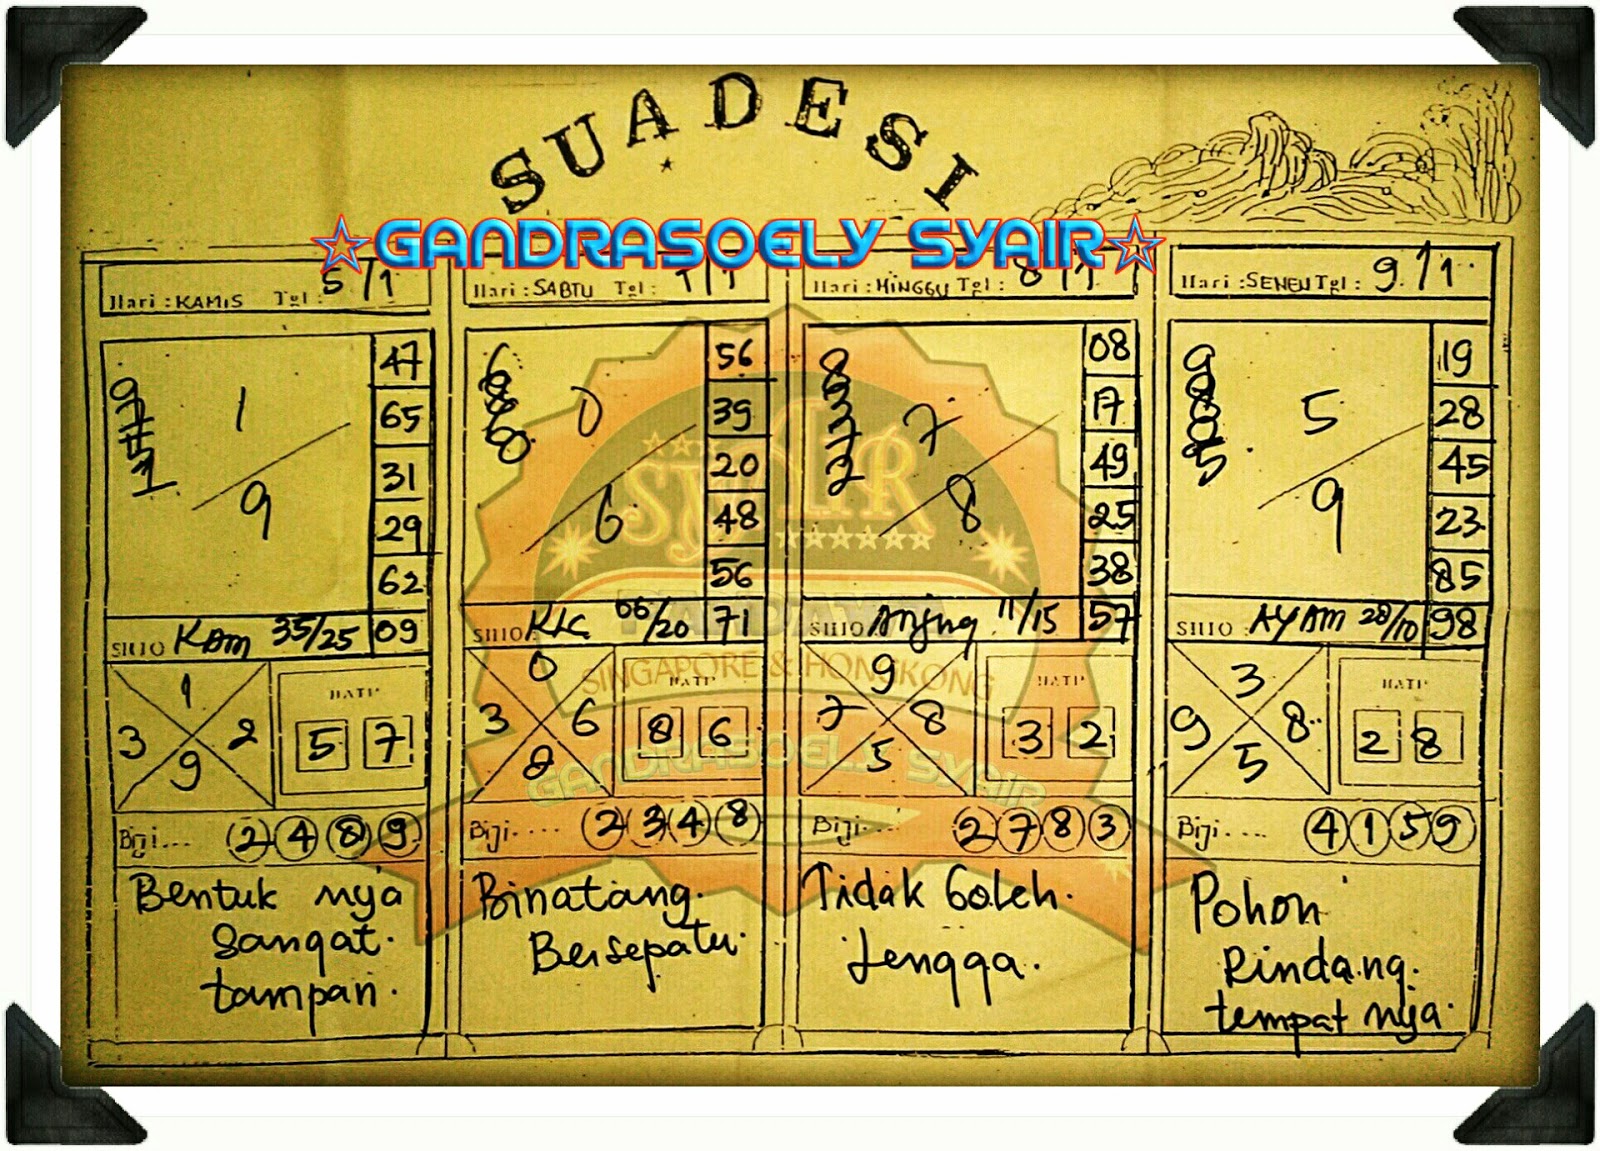 SUADESI
☆GANDRASOELY SYAIR☆
Hari : KAMIS Tgl : 5/1
1
9
47
65
31
29
62
09
SHIO KAM 35/25
1
3 2
9
HATI
5 7
Biji.... 2 4 8 9
Bentuk nya
Sangat.
tampan.
Hari : SABTU Tgl :
0
6
56
39
20
48
56
71
SHIO 66/20
0
3 6
2
HATI
8 6
Biji.... 2 3 4 8
Binatang.
Bersepatu.
Hari : MINGGU Tgl : 8/1
7
8
08
17
49
25
38
57
SHIO Anjing 11/15
9
7 8
5
HATI
3 2
Biji.... 2 7 8 3
Tidak boleh.
Lengga.
Hari : SENEN Tgl : 9/1
5
9
19
28
45
23
85
98
SHIO : AYAM 28/10
3
9 8
5
HATI
2 8
Biji.... 4 1 5 9
Pohon
Rindang.
tempat nya.
SYAIR
SINGAPORE & HONGKONG
GANDRASOELY SYAIR